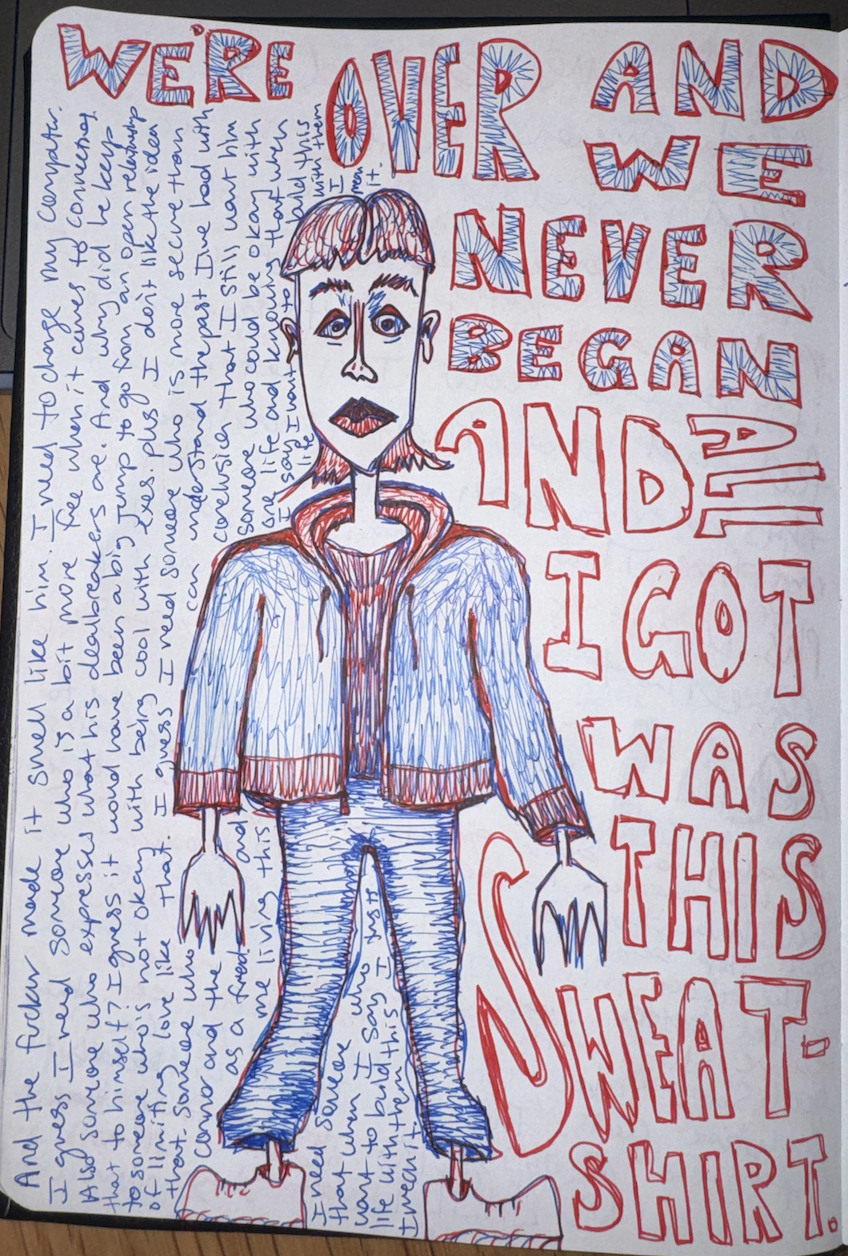 WE'RE OVER AND
WE
NEVER
BEGAN
AND All
I GOT
WAS
THIS
SWEAT-
SHIRT.
And the fucker made it smell like him. I need to change my computer.
I guess I need someone who is a bit more free when it comes to connecting.
Also someone who expresses what his dealbreakers are. And why did he keep
that to himself? I guess it would have been a big jump to go from an open relationship
to someone who's not okay with being cool with exes. plus I don't like the idea
of limiting love like that. I guess I need someone who is more secure than
that. Someone who can understand the past I've had with
Connor and the conclusion that I still want him
as a friend and someone who could be okay with
me living this one life and knowing that when
I say I want to build this
life with them
I mean it.
I need someone who
that when I say I trust
want to build this
life with them
I mean it.